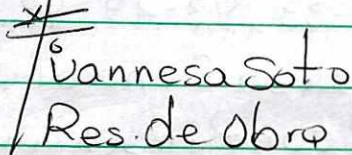 Vannesa Soto
Res. de Obra